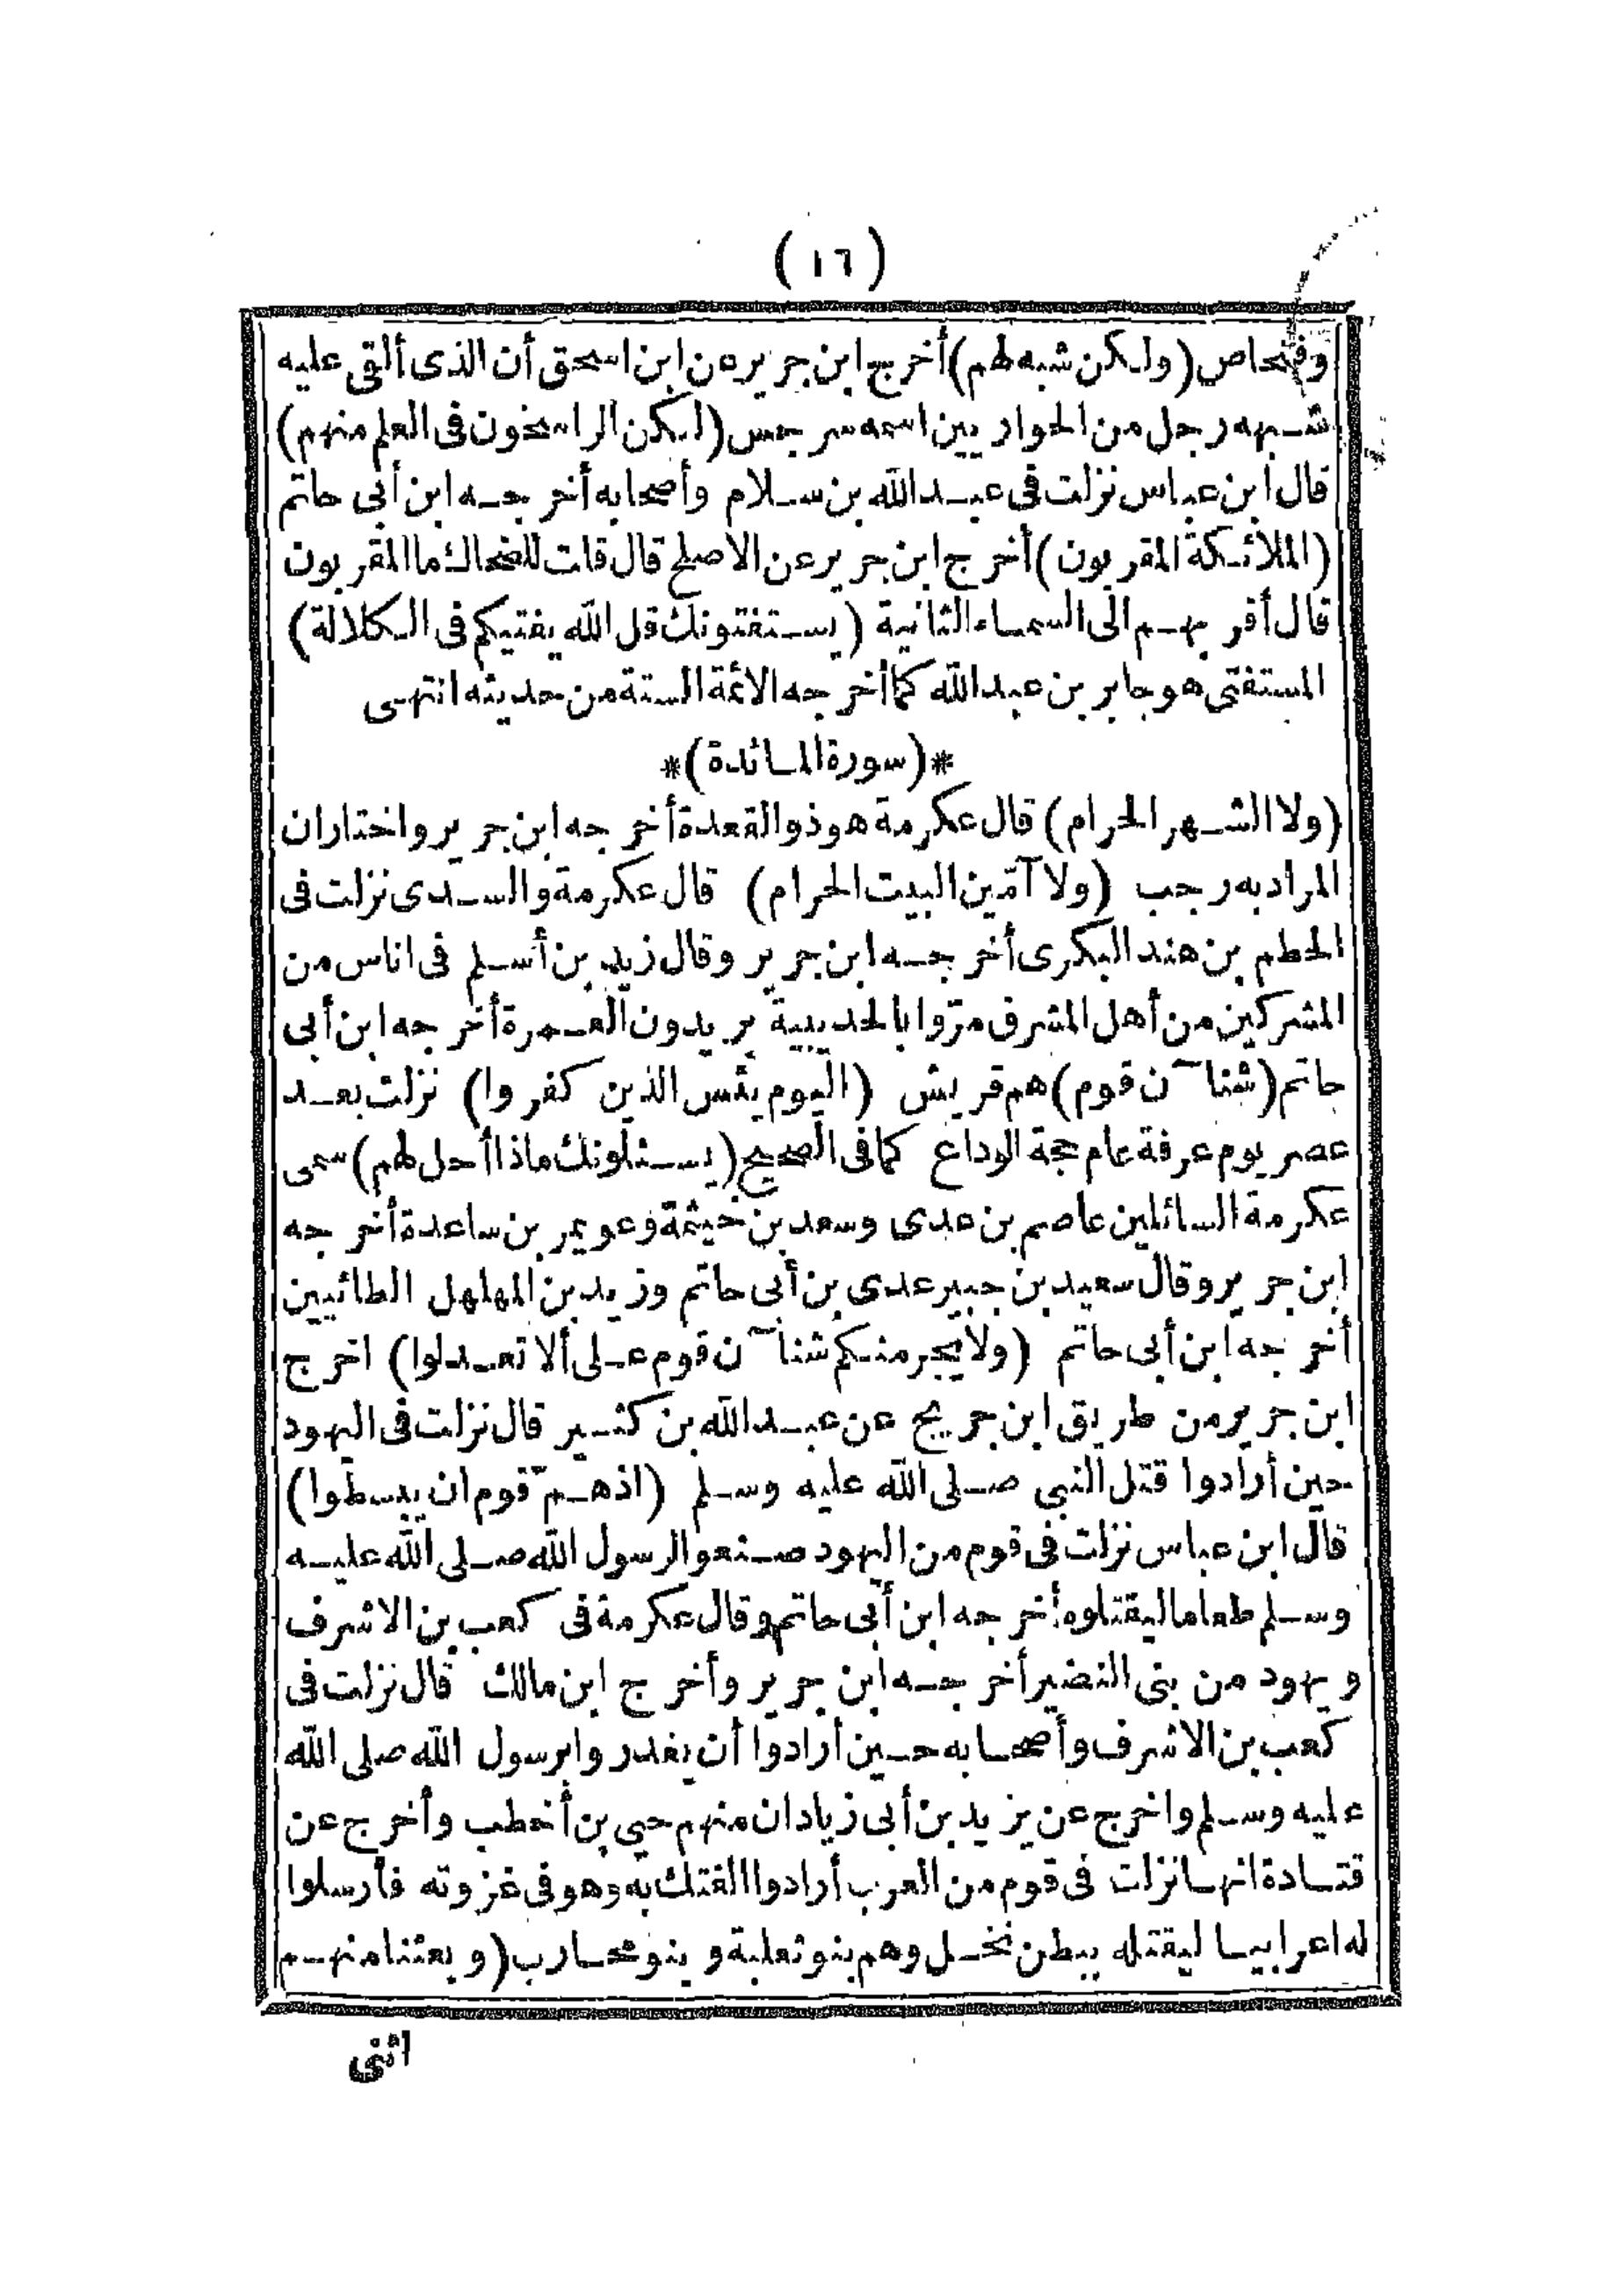 (١٦)
وفنحاص (ولكن شبه لهم) أخرج ابن جرير عن ابن اسحق أن الذى ألقى عليه
شبهه رجل من الحواريين اسمه سرجس (لكن الراسخون فى العلم منهم)
قال ابن عباس نزلت فى عبد الله بن سلام وأصحابه أخرجه ابن أبى حاتم
(الملائكة المقربون) أخرج ابن جرير عن الاصلح قال قلت للضحاك ما المقربون
قال أقربهم الى السماء الثانية (يستفتونك قل الله يفتيكم فى الكلالة)
المستفتى هو جابر بن عبد الله كما أخرجه الائمة الستة من حديثه انتهى
*(سورة المائدة)*
(ولا الشهر الحرام) قال عكرمة هو ذو القعدة أخرجه ابن جرير واختار ان
المراد به رجب (ولا آمّين البيت الحرام) قال عكرمة والسدى نزلت فى
الحطم بن هند البكرى أخرجه ابن جرير وقال زيد بن أسلم فى اناس من
المشركين من أهل المشرق مرّوا بالحديبية يريدون العمرة أخرجه ابن أبى
حاتم (شنآن قوم) هم قريش (اليوم يئس الذين كفروا) نزلت بعد
عصر يوم عرفة عام حجة الوداع كما فى الصحيح (يسئلونك ماذا أحل لهم) سمى
عكرمة السائلين عاصم بن عدى وسعد بن خيثمة وعويمر بن ساعدة أخرجه
ابن جرير وقال سعيد بن جبير عدى بن أبى حاتم وزيد بن المهلهل الطائيين
أخرجه ابن أبى حاتم (ولا يجرمنكم شنآن قوم على ألا تعدلوا) اخرج
ابن جرير من طريق ابن جريج عن عبد الله بن كثير قال نزلت فى اليهود
حين أرادوا قتل النبي صلى الله عليه وسلم (اذ همّ قوم ان يبسطوا)
قال ابن عباس نزلت فى قوم من اليهود صنعوا لرسول الله صلى الله عليه
وسلم طعاما ليقتلوه أخرجه ابن أبى حاتم وقال عكرمة فى كعب بن الاشرف
ويهود من بنى النضير أخرجه ابن جرير وأخرج ابن مالك قال نزلت فى
كعب بن الاشرف وأصحابه حين أرادوا أن يغدروا برسول الله صلى الله
عليه وسلم واخرج عن يزيد بن أبى زياد ان منهم حيي بن أخطب وأخرج عن
قتادة انها نزلت فى قوم من العرب أرادوا الفتك به وهو فى غزوته فأرسلوا
له اعرابيا ليقتله ببطن نخل وهم بنو ثعلبة وبنو محارب (وبعثنا منهم
اثنى